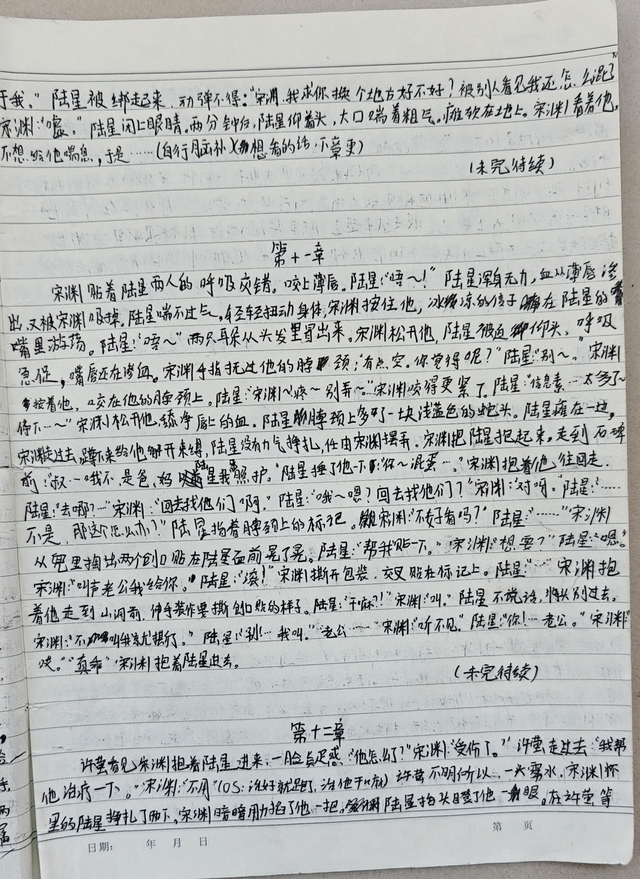 于我。”陆星被绑起来,动弹不得:“宋渊,我求你换个地方好不好?被别人看见我还怎么混”
宋渊:“嘘。”陆星闭上眼睛。两分钟后,陆星仰着头,大口喘着粗气,瘫软在地上。宋渊看着他,
不想给他喘息,于是……(自行脑补)(想看的话,下章更)
(未完待续)
第十一章
宋渊贴着陆星两人的呼吸交错。咬上薄唇。陆星:“唔~!”陆星浑身无力,血从薄唇渗
出,又被宋渊吸掉。陆星喘不过气,轻轻扭动身体,宋渊按住他,冰凉的信子在陆星的
嘴里游荡。陆星:“唔~”两只耳朵从头发里冒出来。宋渊松开他,陆星被迫仰头,呼吸
急促,嘴唇还在渗血。宋渊手指抚过他的脖颈:“有点空。你觉得呢?”陆星:“别~。”宋渊
按着他,咬在他的脖颈上。陆星:“宋渊~疼~别弄~”宋渊咬得更紧了。陆星:“信息素…太多了~
停下…~”宋渊松开他,舔净唇上的血。陆星脖颈上多了一块浅蓝色的蛇头。陆星瘫在一边,
宋渊走过去,蹲下来给他解开束缚,陆星没有力气挣扎,任由宋渊摆弄。宋渊把陆星抱起来。走到石碑
前:“叔…我不是,爸,妈,陆星我照护。”陆星捶了他一下:“你~混蛋…。”宋渊抱着他往回走.
陆星:“去哪?…”宋渊:“回去找他们啊。”陆星:“哦~嗯?回去找他们?”宋渊:“对啊。”陆星:“……
不是,那这个怎么办?”陆星指着脖颈上的标记。宋渊:“不好看吗?”陆星:“……”宋渊
从兜里掏出两个创口贴在陆星面前晃了晃。陆星:“帮我贴一下。”宋渊:“想要?”陆星:“嗯。”
宋渊:“叫声老公我给你。”陆星:“滚!”宋渊撕开包装,交叉贴在标记上。陆星:“…”宋渊抱
着他走到山洞前,伸手装作要撕创口贴的样子。陆星:“干嘛?!”宋渊:“叫。”陆星不说话,将头别过去。
宋渊:“不叫我就撕了。”陆星:“别…我叫。”“老公……”宋渊:“听不见。”陆星:“你!…老公。”宋渊
“真乖”宋渊抱着陆星进去。
(未完待续)
第十二章
许莹看见宋渊抱着陆星进来,一脸疑惑:“他怎么了?”宋渊:“受伤了。”许莹走过去:“我帮
他治疗一下。”宋渊:“不用”(OS:治好就跑了,治他干啥)许莹不明所以,一头雾水,宋渊怀
里的陆星挣扎了两下,宋渊暗暗用力掐了他一把。陆星抬头瞪了他一眼。在许莹等
日期: 年 月 日
第 页